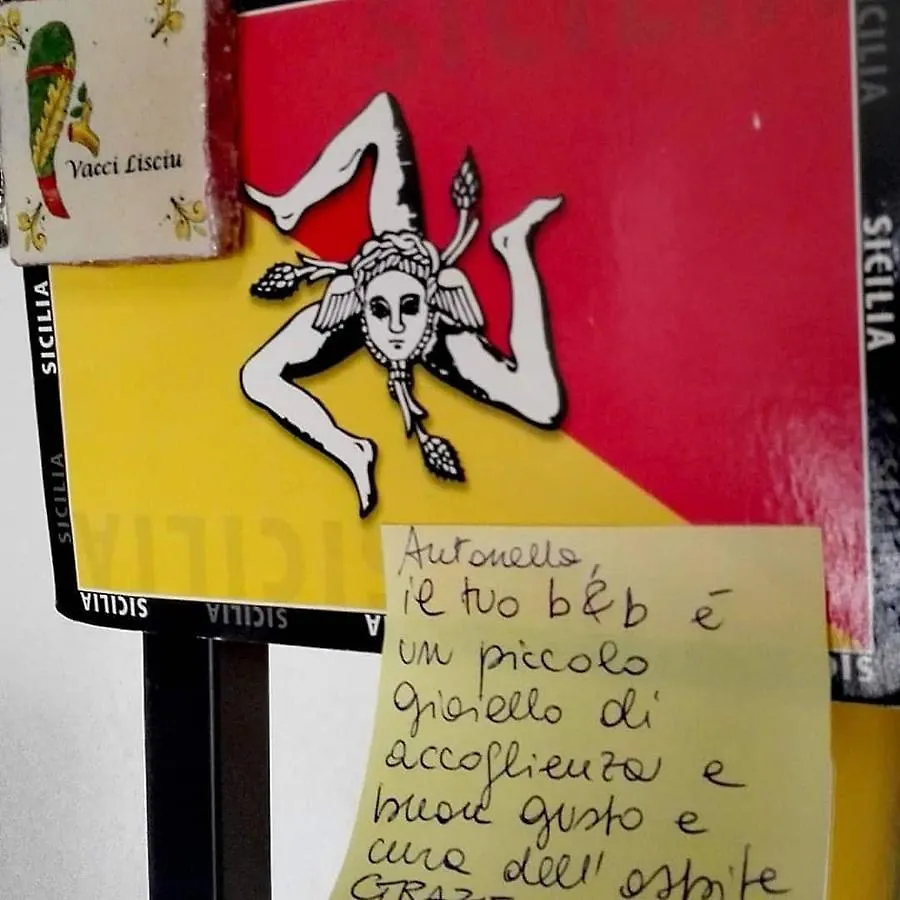 SICILIA
SICILIA
Vacci Lisciu
SICILIA
SICILIA
SICILIA
SICILIA
SICILIA
SICILIA
SICILIA
Antonella,
il tuo b&b è
un piccolo
gioiello di
accoglienza e
buon gusto e
cura dell'ospite
GRAZIE